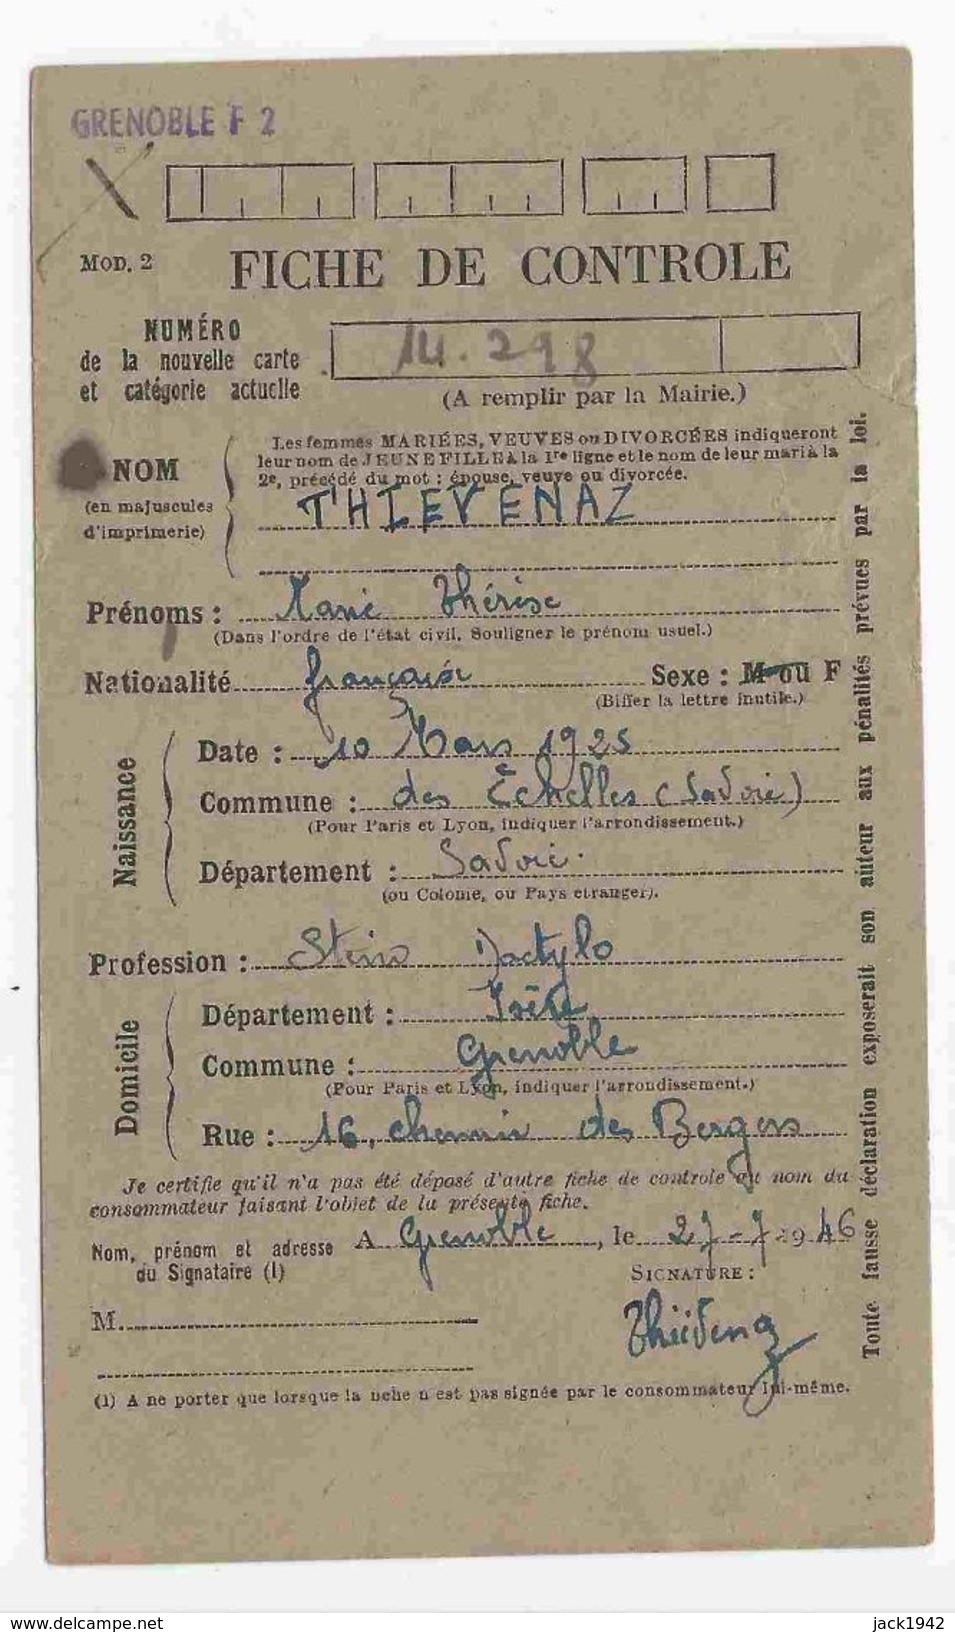 GRENOBLE F 2
MOD. 2
FICHE DE CONTROLE
NUMÉRO
de la nouvelle carte
et catégorie actuelle
14.298
(A remplir par la Mairie.)
NOM
(en majuscules
d'imprimerie)
Les femmes MARIÉES, VEUVES ou DIVORCÉES indiqueront
leur nom de JEUNE FILLE à la 1re ligne et le nom de leur mari à la
2e, précédé du mot : épouse, veuve ou divorcée.
THIEVENAZ
Prénoms : Marie Thérèse
(Dans l'ordre de l'état civil. Souligner le prénom usuel.)
Nationalité française Sexe : M ou F
(Biffer la lettre inutile.)
Naissance
Date : 10 Mars 1925
Commune : des Échelles (Savoie)
(Pour Paris et Lyon, indiquer l'arrondissement.)
Département : Savoie.
(ou Colonie, ou Pays étranger).
Profession : Sténo Dactylo
Domicile
Département : Isère
Commune : Grenoble
(Pour Paris et Lyon, indiquer l'arrondissement.)
Rue : 16, chemin des Bergers
Je certifie qu'il n'a pas été déposé d'autre fiche de controle au nom du
consommateur faisant l'objet de la présente fiche.
A Grenoble, le 27-7-1946
Nom, prénom et adresse
du Signataire (1)
SIGNATURE :
M.
Thiévenaz
(1) A ne porter que lorsque la fiche n'est pas signée par le consommateur lui-même.
Toute fausse déclaration exposerait son auteur aux pénalités prévues par la loi.
https://www.delcampe.net
jack1942